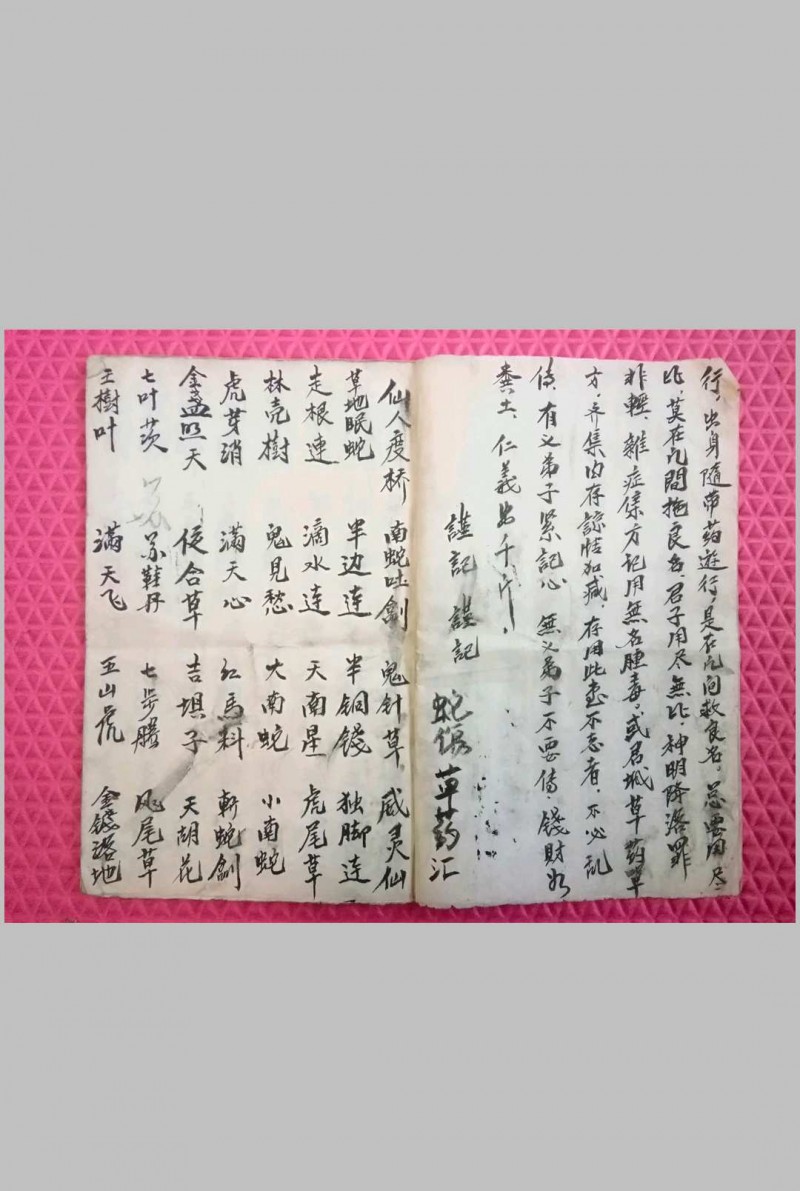 行,出身隨帶药遊行,是在凡间救良名,总要用尽
比,莫在凡間拖良名,君子用尽無比,神明降洛罪
非輕,雜症集方記用無名腫毒,或居城草药單
方,齐集内存諒情加减,存用此書不忘者,不必乱
傳,有义弟子紧記心,無义弟子不要傳,錢財如
糞土,仁義出千斤。
謹記 謹記
蛇傷草药汇
仙人度桥 南蛇吐劍 鬼针草 威灵仙
草地眠蛇 半边连 半铜錢 独脚连
走根連 滴水连 天南星 虎尾草
林壳樹 鬼見愁 大南蛇 小南蛇
虎芽消 滿天心 红馬料 斬蛇劍
金盏照天 佫合草 吉埧子 天胡花
七叶茨 草鞋丹 七步腾 凤尾草
王樹叶 滿天飞 五山虎 金錢洛地